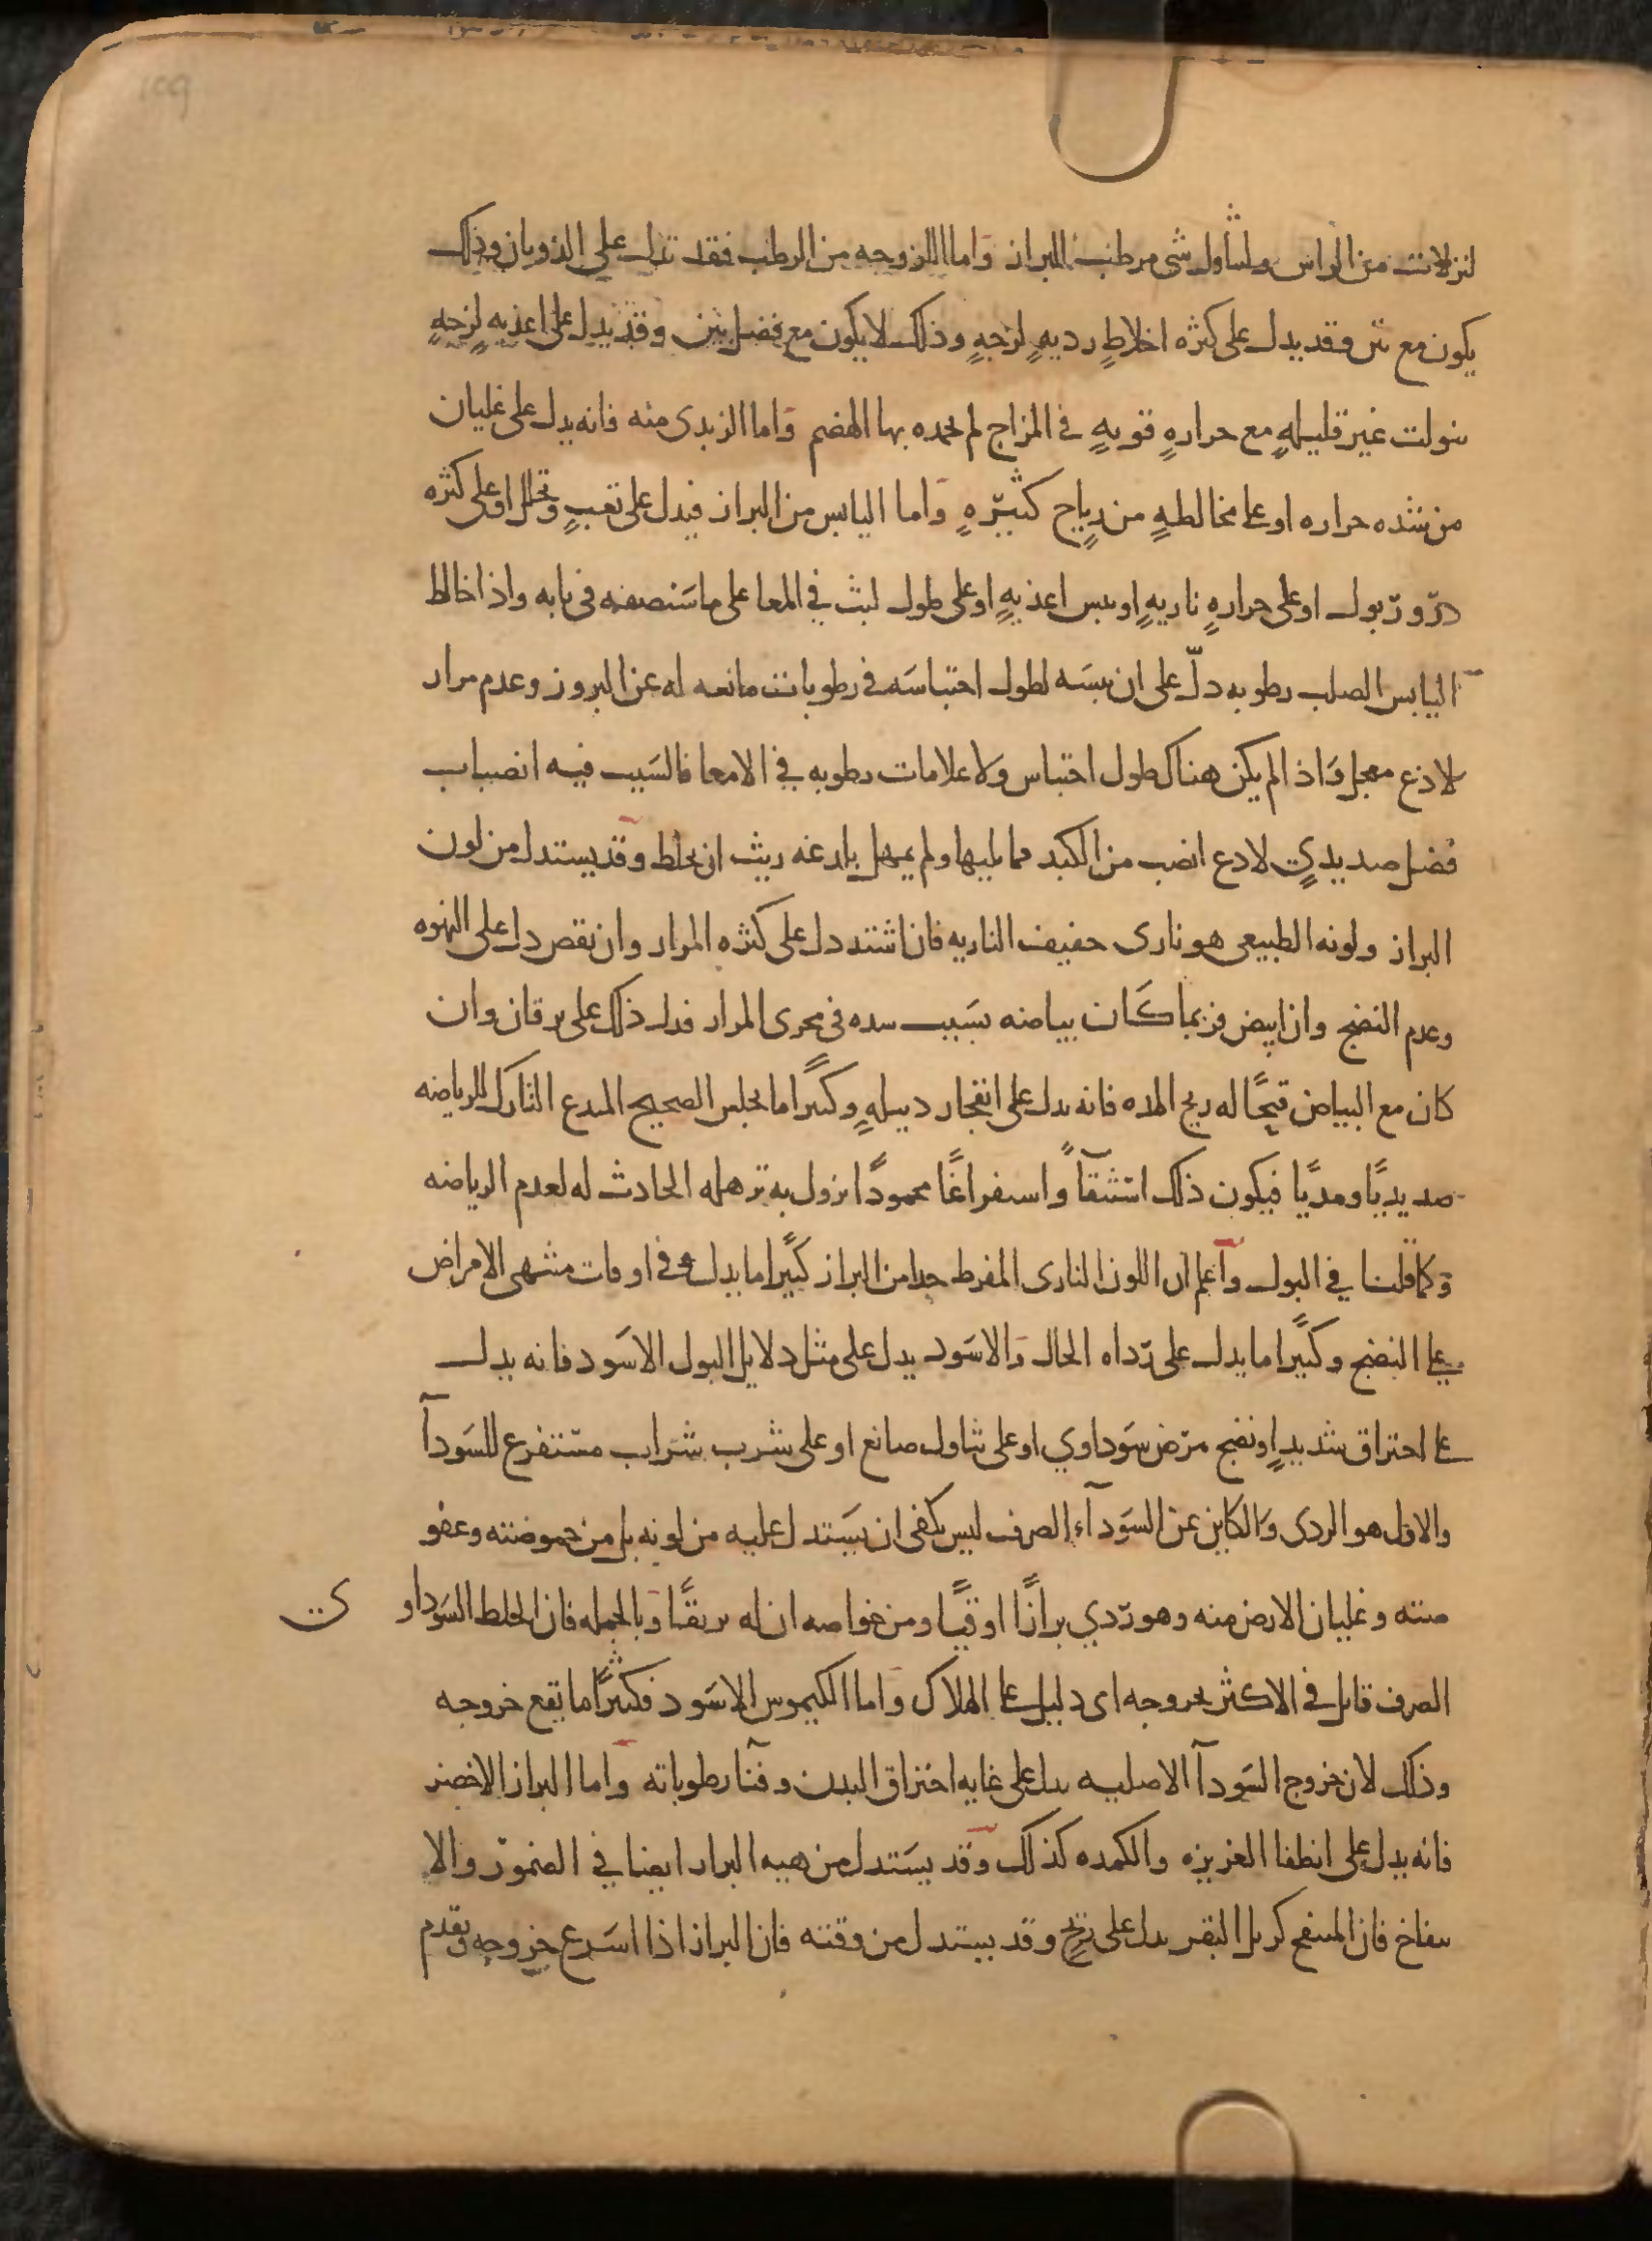 لنزلات من الراس ولتناول شى مرطب للبراز واما اللزوجه من الرطب فقد تدل على الذوبان وذلك
يكون مع نتن وقد يدل على كثره اخلاطٍ رديهٍ لزجهٍ وذلك لا يكون مع فضل نتن وقد يدل على اغذيه لزجهٍ
تنولت غير قليلهٍ مع حرارهٍ قويهٍ في المزاج لم تجده بها الهضم واما الزبدى منه فانه يدل على غليان
من شده حراره او على مخالطهٍ من رياحٍ كثيرهٍ واما اليابس من البراز فيدل على تعبٍ وتحلل او على كثره
درّور بول او على حرارهٍ ناريهٍ او يبس اغذيهٍ او على طول لبث في المعا على ما سنصفه فى بابه واذا خالط
اليابس الصلب رطوبه دلّ على ان يبسه لطول احتباسه فى رطوبات مانعه له عن البروز وعدم مرار
لاذع معجل واذا لم يكن هناك طول احتباس ولا علامات رطوبه في الامعا فالسبب فيه انصباب
فضل صديديٍ لادع انصب من الكبد مما يليها ولم يمهل بلدغه ريث ان يخلط وقد يستدل من لون
البراز ولونه الطبيعى هو نارى خفيف الناريه فان اشتد دل على كثره المرار وان نقص دل على النهوه
وعدم النضج وان ابيض فربما كان بياضه بسبب سده فى مجرى المرار فدل ذلك على يرقان وان
كان مع البياض قيحًا له ريح المده فانه يدل على انفجار دبيلهٍ وكثيرًا ما يجلس الصحيح المدع التارك للرياضه
صديديًا ومديًا فيكون ذلك استنقآً واستفراغًا محمودًا يزول به ترهله الحادث له لعدم الرياضه
وكما قلنا في البول واعلم ان اللون النارى المفرط جدا من البراز كثيرًا ما يدل فى اوقات منتهى الامراض
على النضج وكثيرًا ما يدل على رداه الحال والاسود يدل على مثل دلايل البول الاسود فانه يدل
على احتراق شديدٍ او نضج مرض سوداوي او على تناول صابغ او على شرب شراب مستفرغ للسودآ
والاول هو الردى والكاين عن السودآء الصرف ليس يكفى ان يستدل عليه من لونه بل من حموضته وعفو
صته وغليان الارض منه وهو ردي برازًا او قيًا ومن خواصه ان له بريقًا وبالجمله فان الخلط السوداو ى
الصرف قاتل فى الاكثر بخروجه اى دليل على الهلاك واما الكيموس الاسود فكثيرًا ما يقع خروجه
وذلك لان خروج السودآ الاصليه يدل على غايه احتراق البدن وفنآ رطوباته واما البراز الاخضر
فانه يدل على انطفا الغريزه والكمده كذلك وقد يستدل من هيه البراز ايضا في الضمور والا
نتفاخ فان المنتفخ كزبل البقر يدل على ريحٍ وقد يستدل من وقته فان البراز اذا اسرع خروجه وتقدم